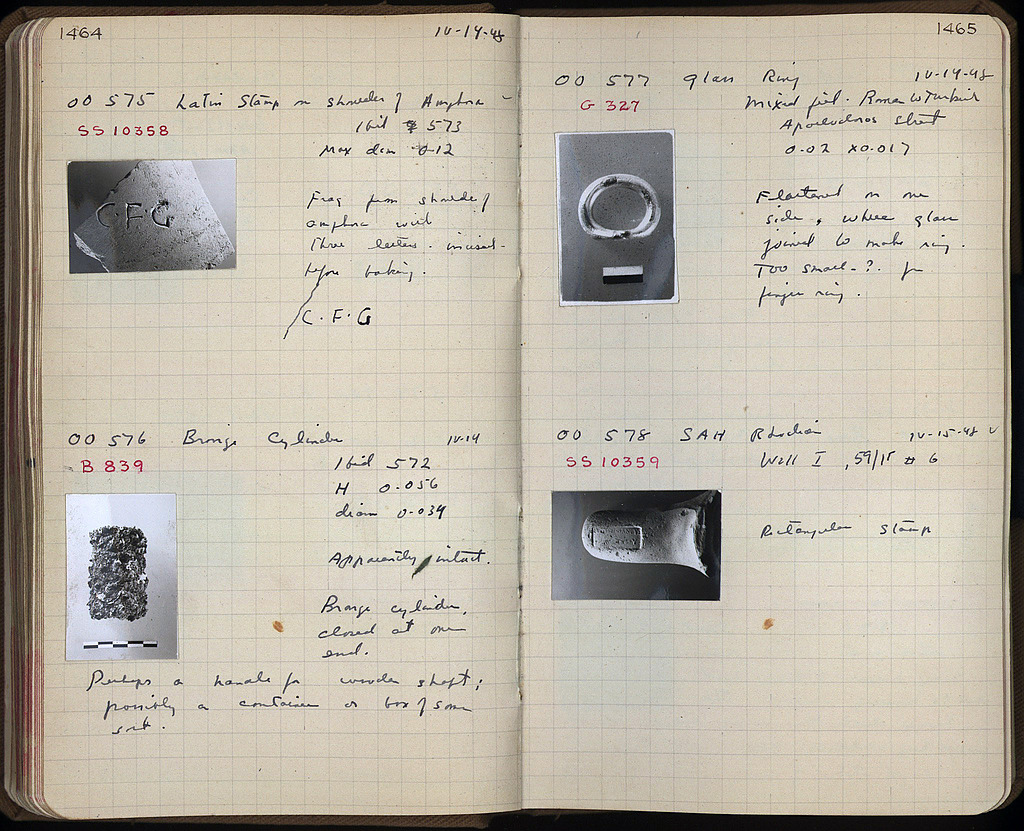 1464
IV-14-48
OO 575 Latin Stamp on shoulder of Amphora
SS 10358
Ibid 573
Max dim 0.12
C.F.G
Frag from shoulder of
amphora with
three letters. incised.
before baking.
C.F.G
OO 576 Bronze Cylinder
IV-14
B 839
Ibid 572
H 0.056
diam 0.034
Apparently intact.
Bronze cylinder,
closed at one
end.
Perhaps a handle for wooden shaft;
possibly a container or box of some
sort.
1465
OO 577 Glass Ring
IV-14-48
G 327
Mixed fill. Roman to Turkish
Apollodoros Street
0.02 x 0.017
Flattened on one
side, where glass
joined to make ring.
Too small-?. for
finger ring.
OO 578 SAH Rhodian
IV-15-48
SS 10359
Well I, 59/ΙΓ # 6
Rectangular Stamp